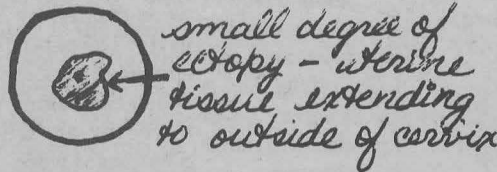 small degree of
ectopy - uterine
tissue extending
to outside of cervix